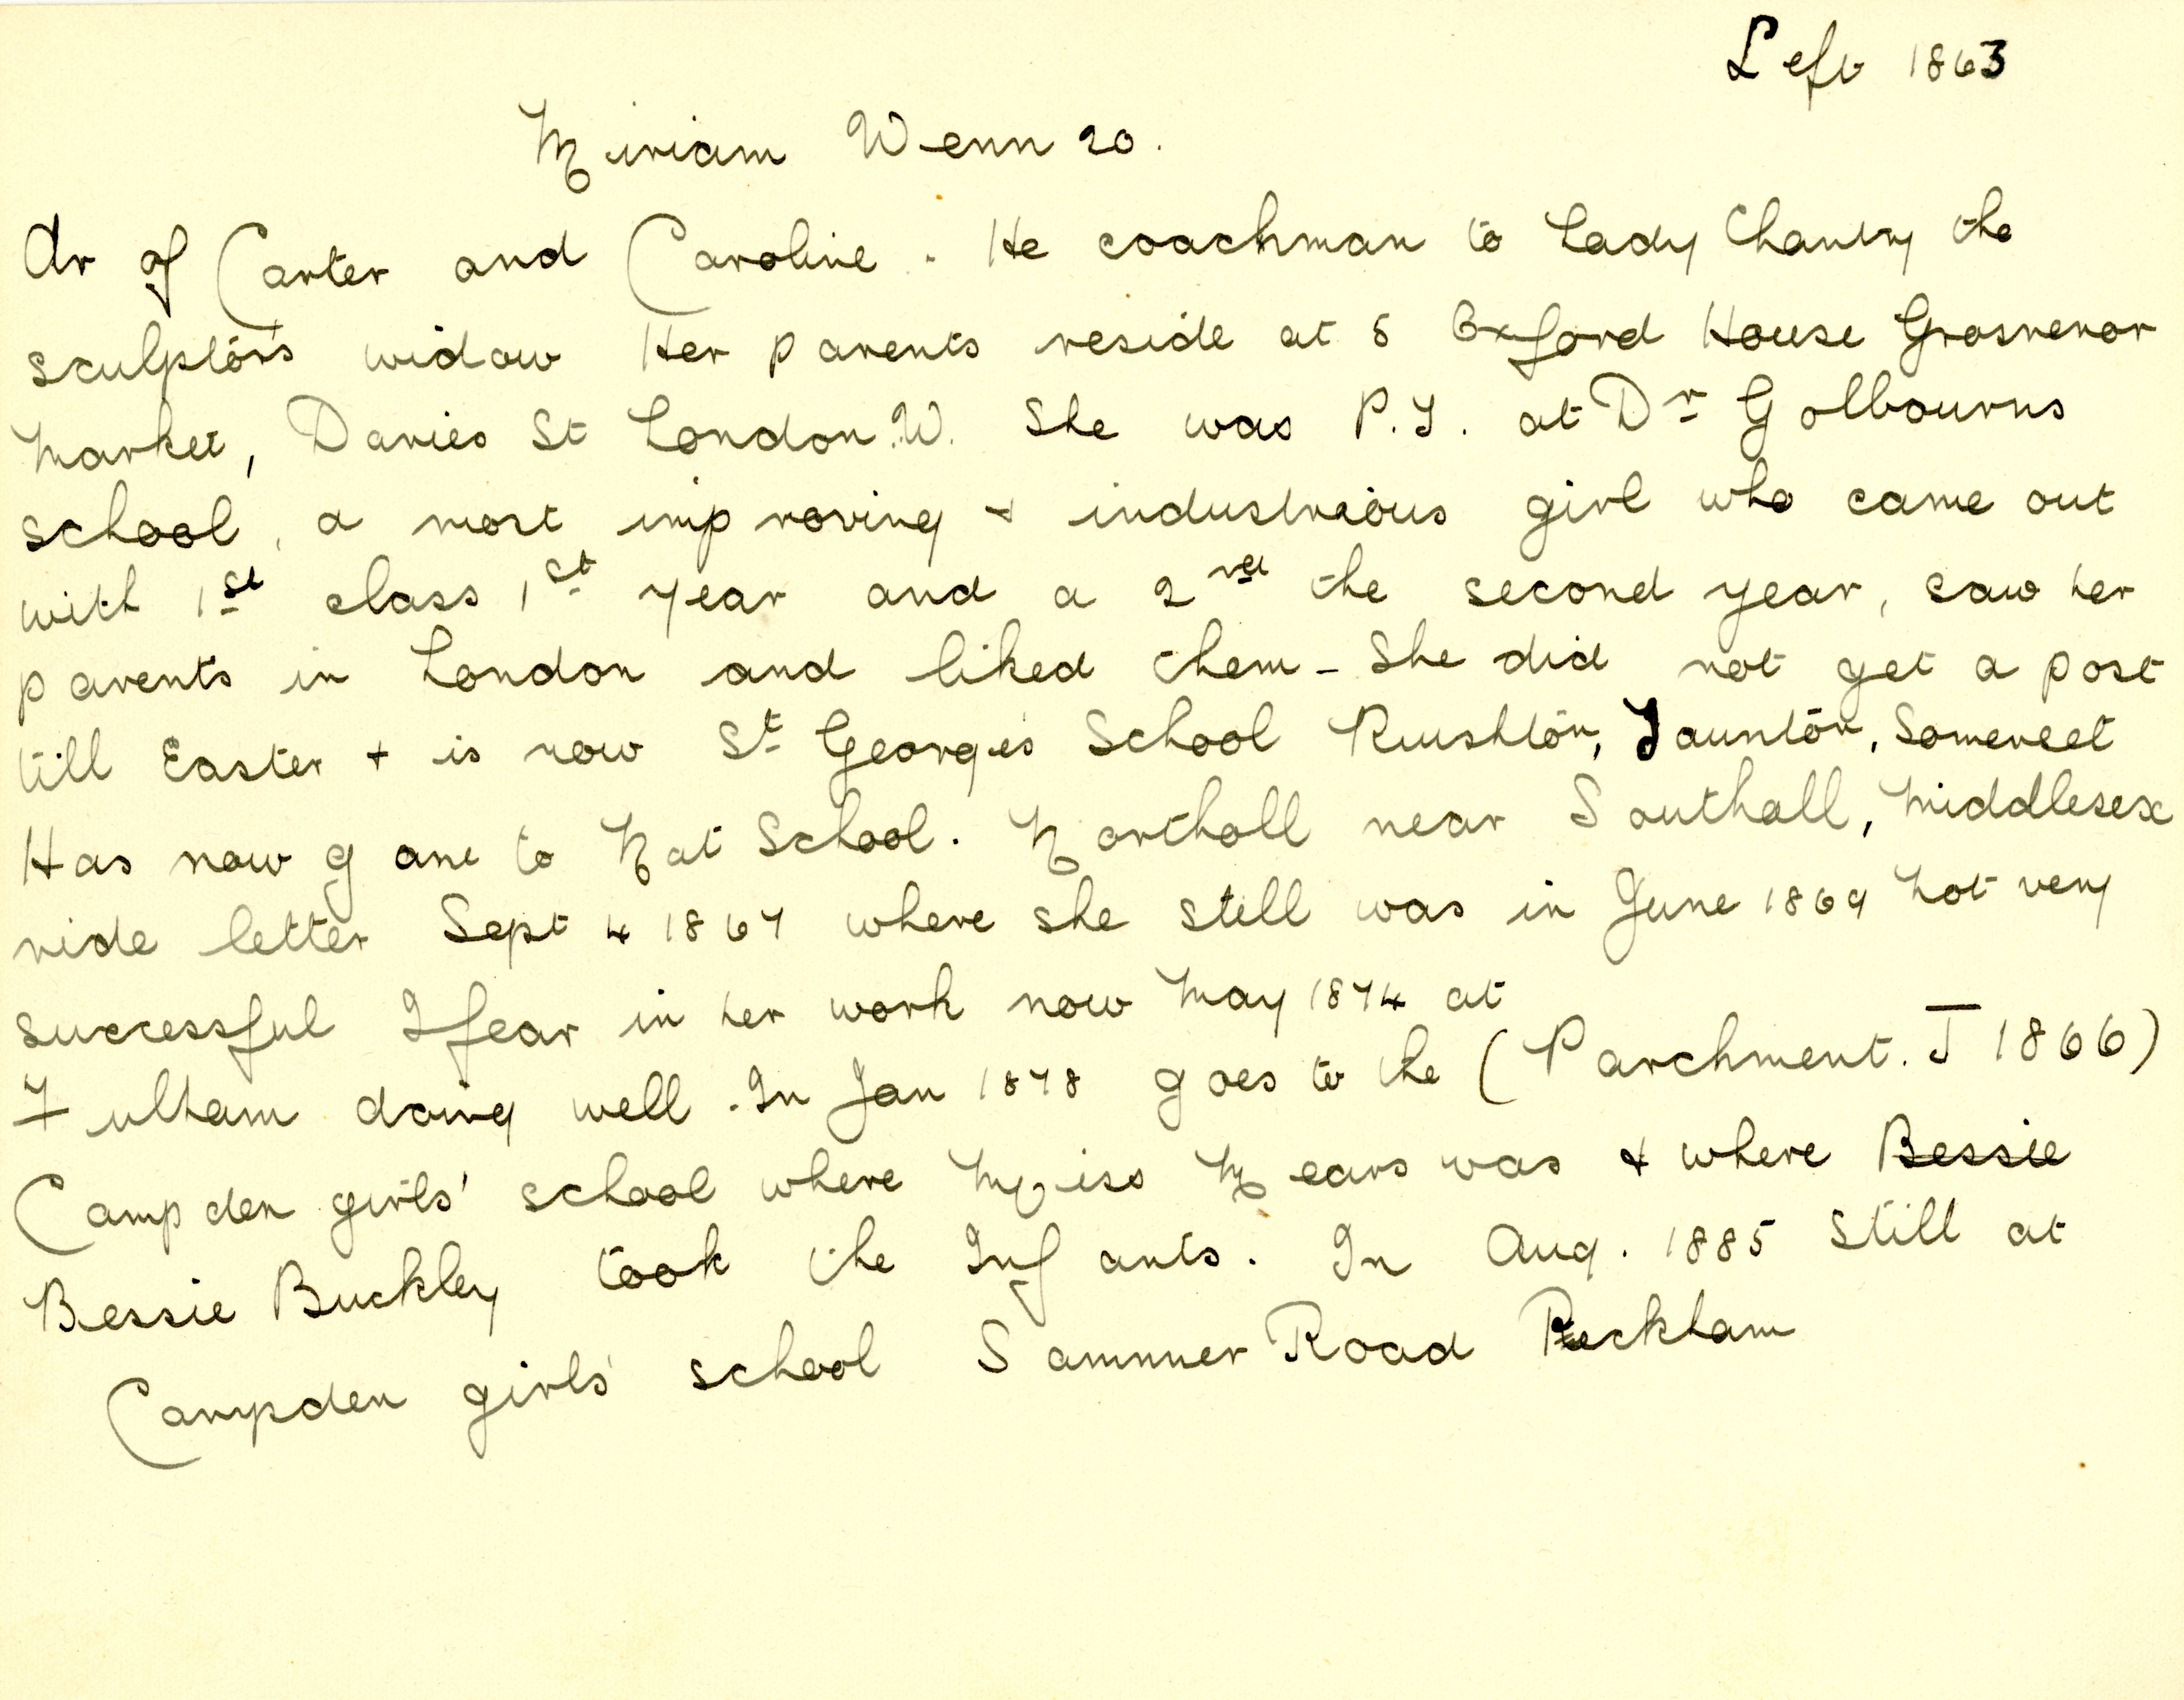 Left 1863
Miriam Wenn 20.
Dr of Carter and Caroline. He coachman to Lady Chantry the
sculptor's widow Her parents reside at 5 Oxford House Grosvenor
Market, Davies St London.W. She was P.T. at Dr Golbourns
school, a most improving & industrious girl who came out
with 1st class 1st year and a 2nd the second year, saw her
parents in London and liked them - She did not get a post
till Easter + is now St George's School Ruishton, Taunton, Somerset
Has now gone to Nat School. Northall near Southall, Middlesex
vide letter Sept 4 1867 where she still was in June 1869 not very
successful I fear in her work now May 1874 at
Fulham doing well. In Jan 1878 goes to the (Parchment. J 1866)
Campden girls' school where Miss Mears was & where Bessie
Bessie Buckley took the Infants. In Aug. 1885 still at
Campden girls' school Sumner Road Peckham